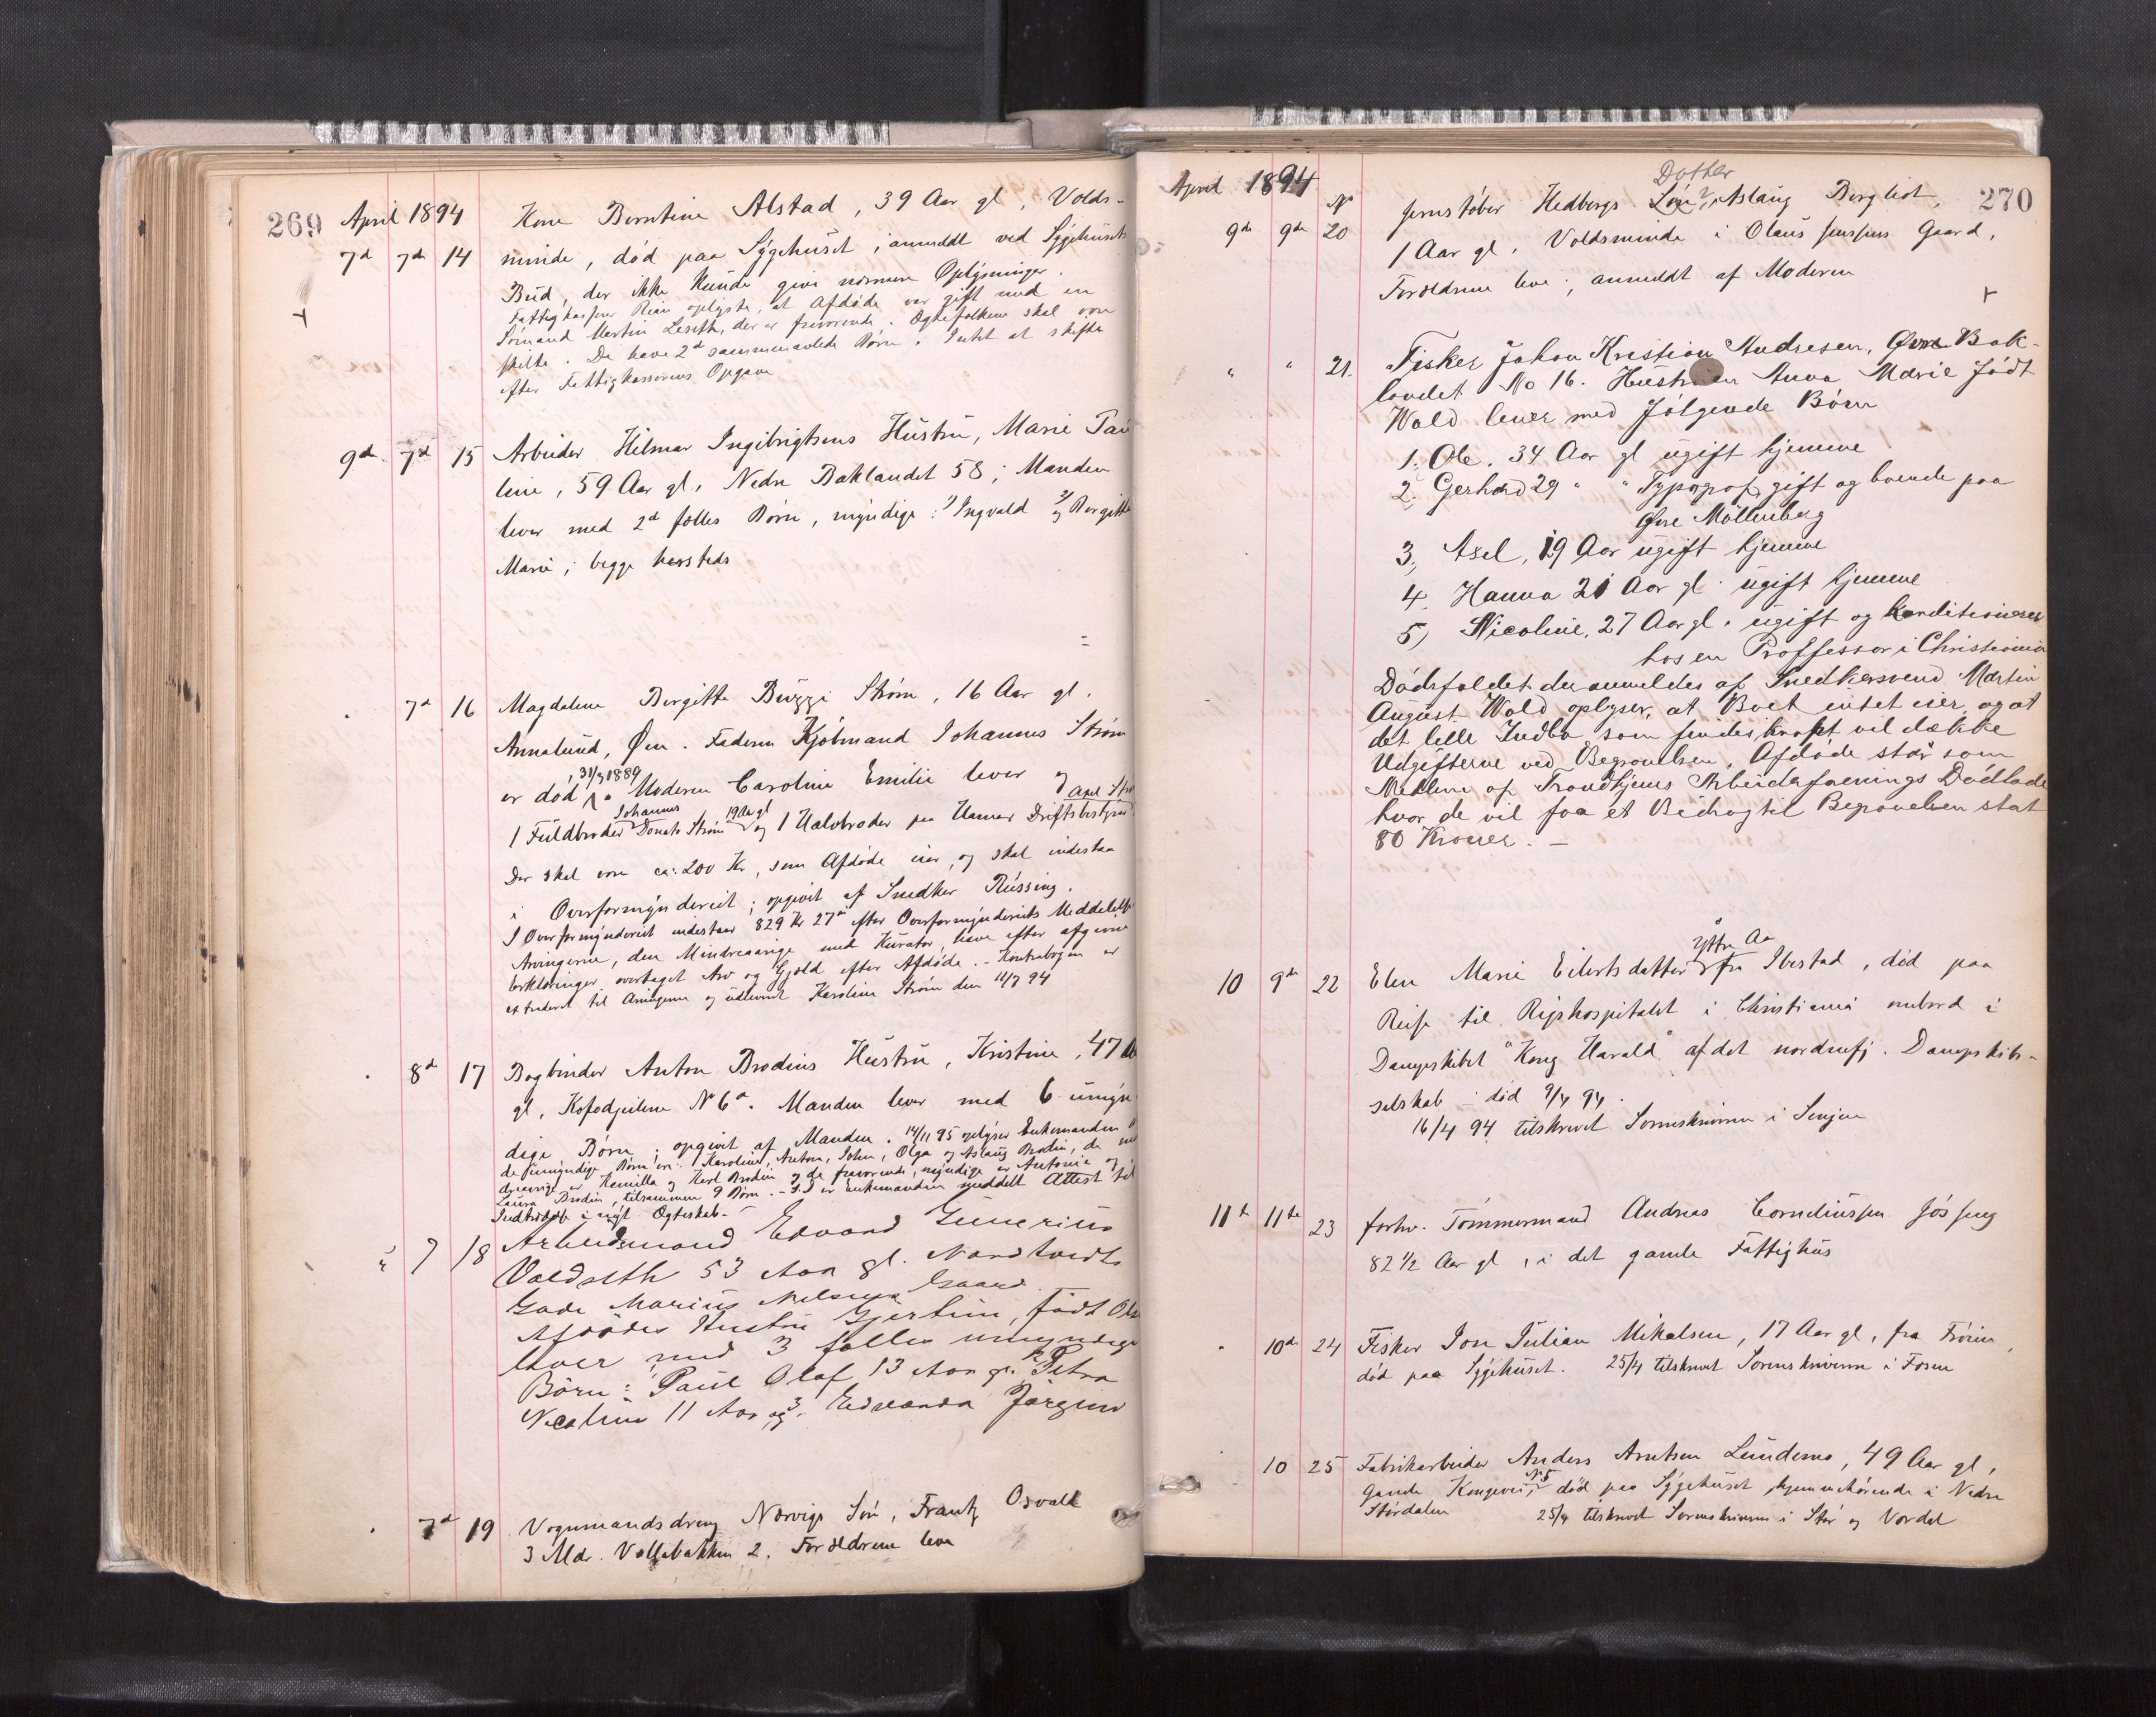 269 April 1894
7d 7d 14 Kone Berntine Alstad, 39 Aar gl, Volds-
minde, död paa Sygehuset, anmeldt ved Sygehusets
Bud, der ikke kunde give nærmere Oplysninger.
Fattigkasserer oplyste, at Afdöde var gift med en
Sömand Martin Leseth, der er fraværende. Ægtefolkene skal være
skilte. De have 2d sammenavlede Börn. Intet at skifte
efter Fattigkassererens Opgave
9d 7d 15 Arbeider Hilmar Ingebrigtsens Hustru, Marie Pau
line, 59 Aar gl, Nedre Baklandet 58; Manden
lever med 2d fælles Börn, myndige: 1) Ingvald og 2) Bergitte
Marie; begge hersteds
7d 16 Magdalene Bergitte Buggi Ström, 16 Aar gl.
Annalund, Øen. Faderen Kjöbmand Johannes Ström
er död, 31/3 1889 Moderen Caroline Emilie lever og
1 Fuldbroder Johannes Donato Ström 19 Aar gl og 1 Halvbroder paa Hamar Driftsbestyrer Axel Str
Der skal være ca: 200 Kr, som Afdöde eier, og skal indestaa
i Overformynderiet; opgivet af Snedker Rüssing.
I Overformynderiet indestaar 829 Kr 27 ö efter Overformynderiets Meddelelse
Arvingerne, den Mindreaarige med Kurator, have efter afgivne
Erklæringer overtaget Arv og Gjæld efter Afdöde. - Kontrabogen er
extraderet til Arvingerne og udleveret Karoline Ström den 11/7 94
8d 17 Bogbinder Anton Brodins Hustru, Kristine, 47 Aa
gl, Kofodgeilene No 6a. Manden lever med 6 umyn
dige Börn; opgivet af Manden. 14/11 95 oplyser Enkemanden
de umyndige Börn er: Karoline, Anton, John, Olga og Aslaug Brodin, de
er Kamilla og Karl Brodin og de fraværende, myndige er Antonie og
Laura Brodin, tilsammen 9 Börn. - S.D er Enkemanden meddelt Attest til
Indtrædelse i nyt Ægteskab. -
" 7 18 Arbeidsmand Edvard Gunerius
Voldseth 53 Aar gl. Nardtvedts
Gade Marius Nelsens Gaard
Afdödes Hustru Gjertine, födt Ols
lever med 3 fælles umyndige
Börn: 1 Paul Olaf 13 Aar gl. 2 Petra
Nicoline 11 Aar og 3. Edvarda Jörgine
7d 19 Vognmandsdreng Norvigs Sön, Frantz Osvald
3 Mdr. Vollabakken 2. Forældrene leve
April 1894 270
No Dotter
9de 9de 20 Jernstöber Hedbergs Sön, Aslaug Bergliot,
1 Aar gl, Voldsminde i Olaus Jensens Gaard,
Forældrene leve; anmeldt af Moderen
" " 21. Fisker Johan Kristian Andresen, Øvre Bak-
landet No 16. Hustruen Anna Marie födt
Wold lever med fölgende Börn
1. Ole. 34 Aar gl ugift hjemme
2. Gerhard 29 " " Typograf, gift og boende paa
Øvre Möllenberg
3, Axel, 19 Aar ugift hjemme
4. Hanna 21 Aar gl. ugift hjemme
5) Nicoline, 27 Aar gl. ugift og konditionerer
hos en Proffessor i Christiania
Dödsfaldet der anmeldes af Snedkersvend Martin
August Wold oplyser, at Boet intet eier og at
det lille Indbo som findes, knapt vil dække
Udgifterne ved Begravelsen. Afdöde står som
Medlem af Trondhjems Arbeiderforenings Dödlade
hvor de vil faa et Bidrag til Begravelsen stort
80 Kroner. -
10 9de 22 Elen Marie Eilertsdatter Yttre Aa fra Ibestad, död paa
Reise til Rigshospitalet i Christiania ombord i
Dampskibet "Kong Harald" af det nordenfj. Dampskibs-
selskab - död 9/4 94.
16/4 94 tilskrevet Sorenskriveren i Senjen
11te 11te 23 forhv. Tömmermand Andreas Corneliussen Jössing
82 1/2 Aar gl, i det gamle Fattighus
10de 24 Fisker Jon Julian Mikalsen, 17 Aar gl, fra Fröien,
död paa Sygehuset. 25/4 tilskrevet Sorenskriveren i Fosen
10 25 Fabrikarbeider Anders Arntsen Lundemo, 49 Aar gl,
Gamle Kongevei No 5, död paa Sygehuset hjemmehörende i Nedre
Stördalen 25/4 tilskrevet Sorenskriveren i Stör og Værdal